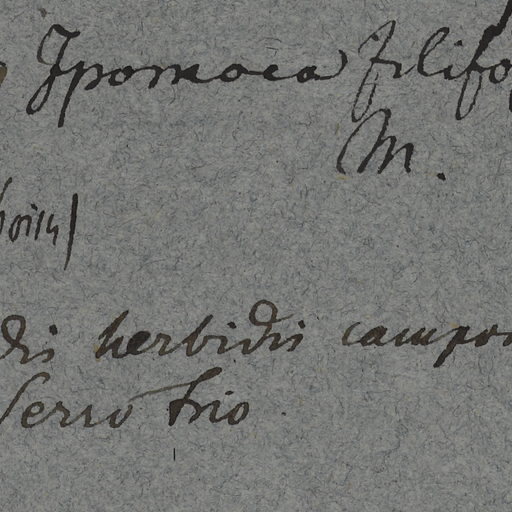 Ipomoea filifo
M.
dis herbidis campor
Serro frio